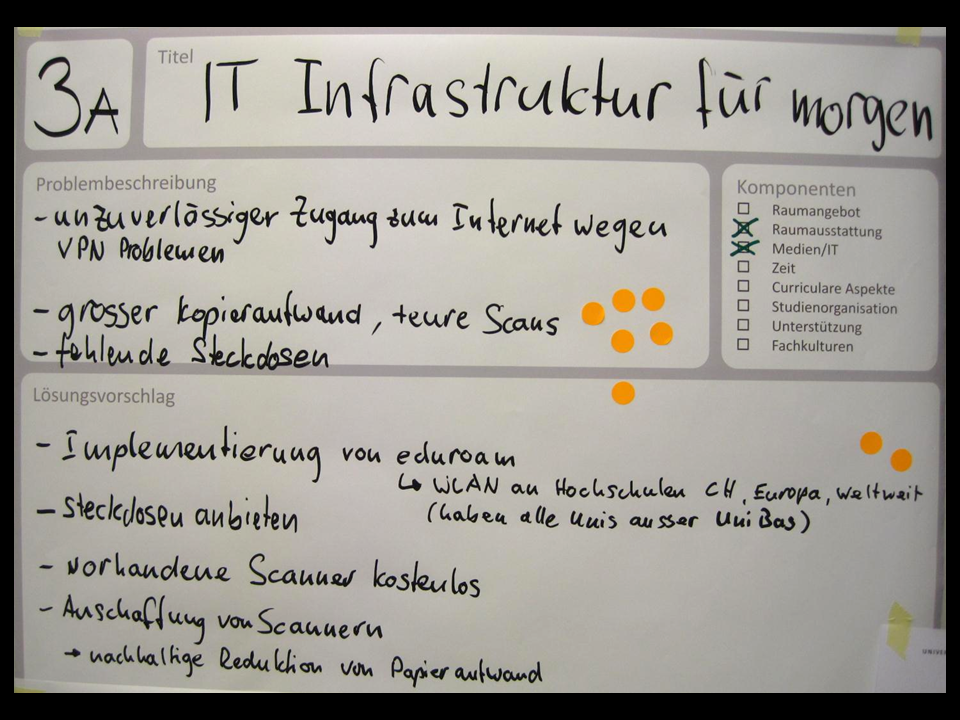 3A
Titel
IT Infrastruktur für morgen
Problembeschreibung
- unzuverlässiger Zugang zum Internet wegen
VPN Problemen
- grosser Kopieraufwand, teure Scans
- fehlende Steckdosen
Komponenten
Raumangebot
Raumausstattung
Medien/IT
Zeit
Curriculare Aspekte
Studienorganisation
Unterstützung
Fachkulturen
Lösungsvorschlag
- Implementierung von eduroam
↳ WLAN an Hochschulen CH, Europa, weltweit
(haben alle Unis ausser Uni Bas)
- Steckdosen anbieten
- vorhandene Scanner kostenlos
- Anschaffung von Scannern
→ nachhaltige Reduktion von Papieraufwand